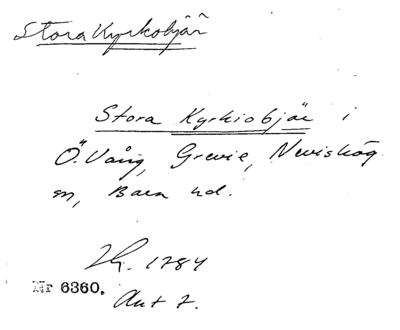 Stora Kyrkobjär
Stora Kyrkiobjär i
Ö. Vång, Grevie, Nevishög
sn, Bara hd.
1784
Nr 6360.
Akt 7.